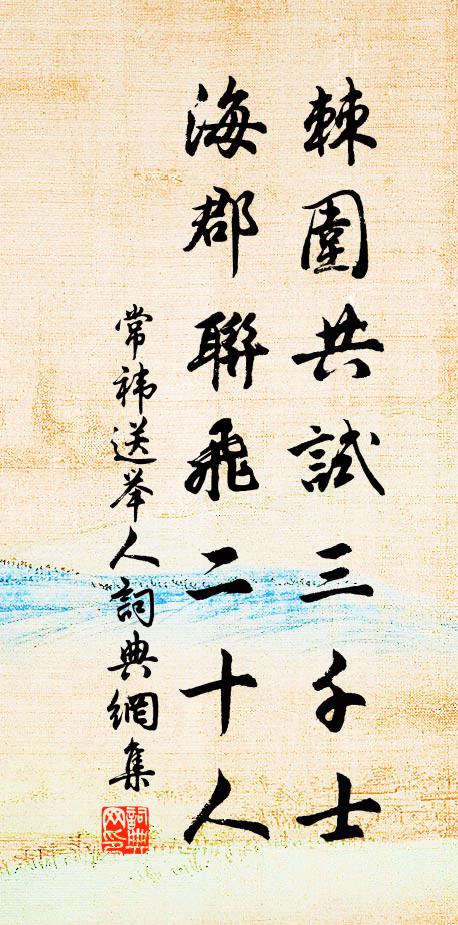 棘圍共試三千士
海郡聯飛二十人
常祎送举人詞典網集
詞典網印